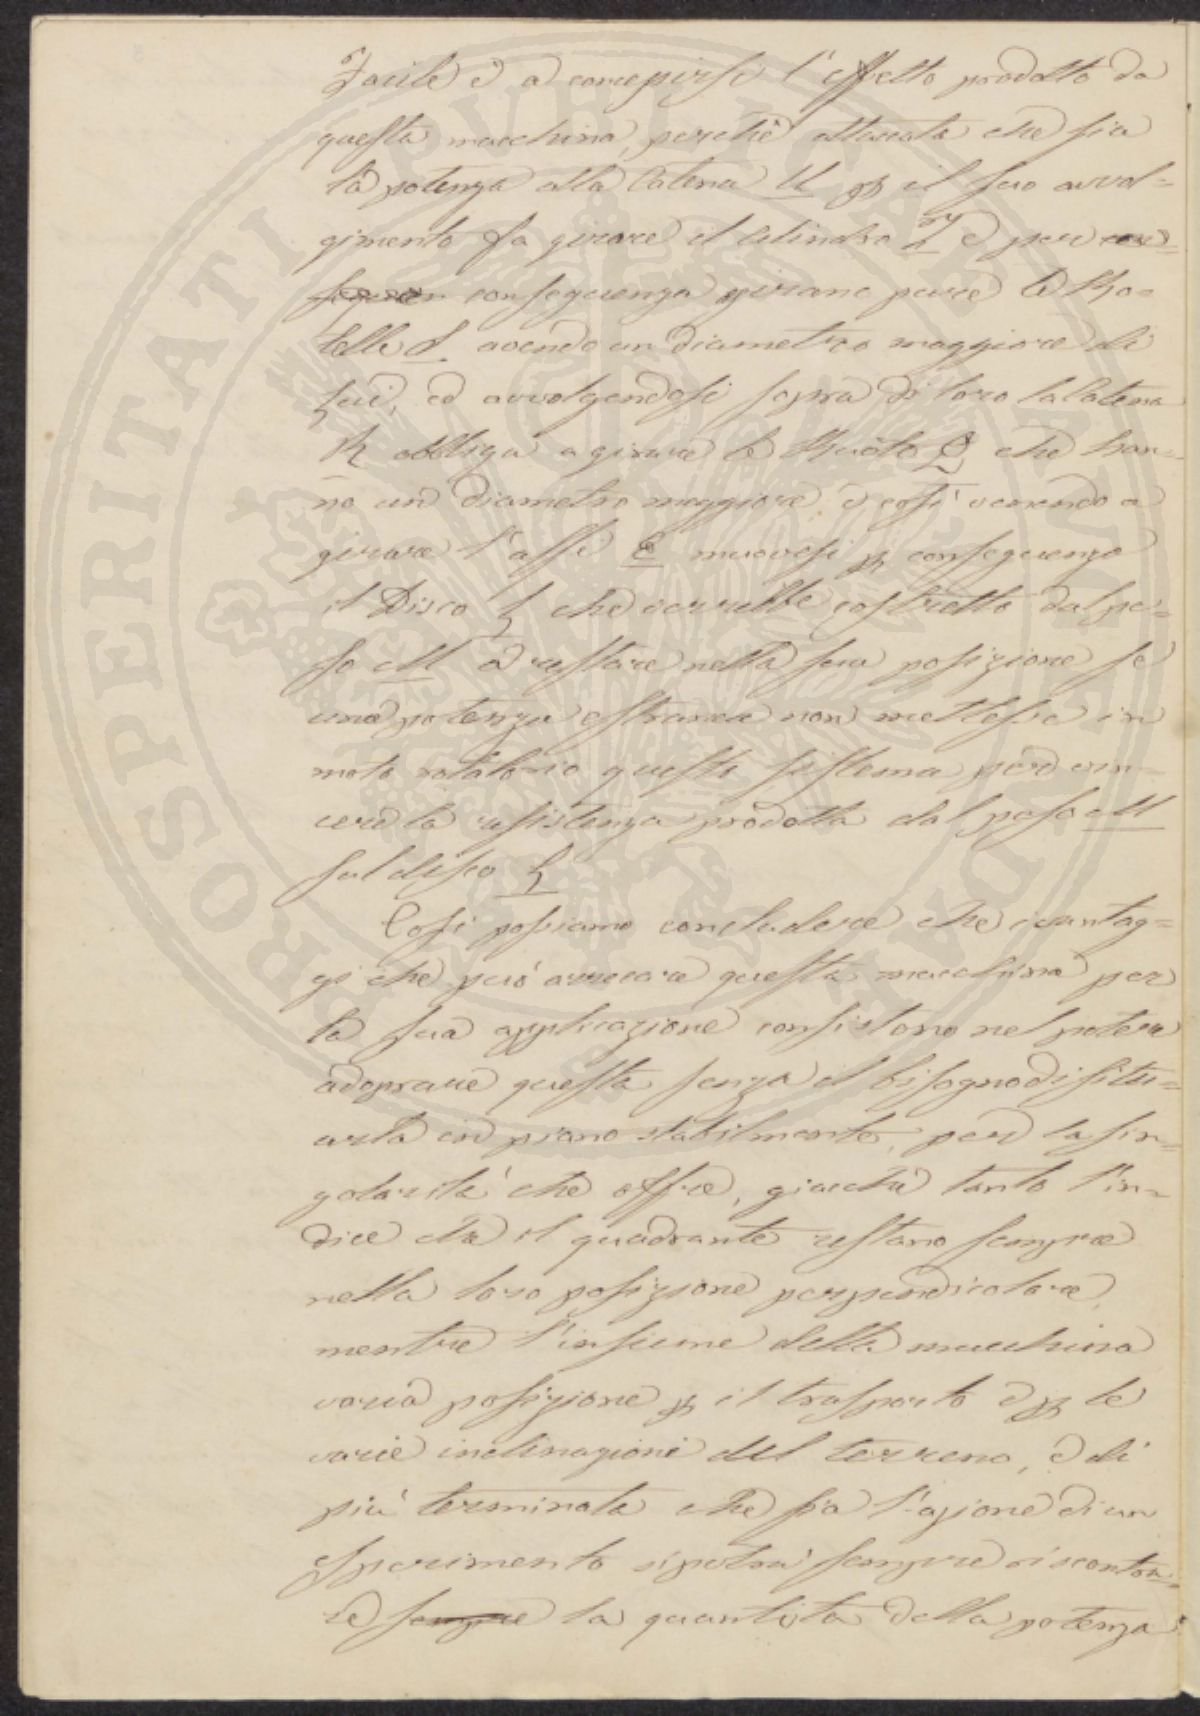 Facile è a concepirsi l'effetto prodotto da
questa macchina, perchè attaccata che sia
la potenza alla Catena U p il suo avvol=
gimento fa girare il Cilindro T e per con=
seguen conseguenza girano pure le Ro=
telle S avendo un diametro maggiore di
lui, ed avvolgendosi sopra di loro la Catena
R obbliga a girare le Ruote Q che han=
no un diametro maggiore e così venendo a
girare l'asse C muovesi p conseguenza
il Disco L che verrebbe costretto dal pe=
so M a restare nella sua posizione se
una potenza estranea non mettesse in
moto rotatorio questo sistema per vin=
cere la resistenza prodotta dal peso M
sul disco L
Così possiamo concludere che i vantag=
gi che può arrecare questa macchina per
la sua applicazione consistono nel potere
adoprare questa senza il bisogno di situ=
arla in piano stabilmente, per la sin=
golarità che offre, giacchè tanto l'in=
dice che il quadrante restano sempre
nella loro posizione perpendicolare,
mentre l'insieme della macchina
varia posizione p il trasporto e p le
varie inclinazioni del terreno, e di
più terminata che sia l'azione di un
Sperimento si potrà sempre riscontra=
re sempre la quantità della potenza
PROSPERITATI PVBLICAE AVGENDAE